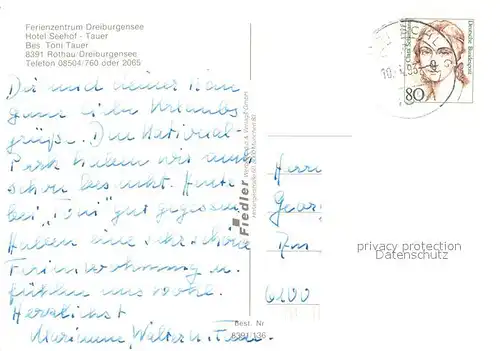 Ferienzentrum Dreiburgensee
Hotel Seehof - Tauer
Bes. Toni Tauer
8391 Rothau/Dreiburgensee
Telefon 08504/760 oder 2065
Dir und deiner
ganz liebe Urlaubs
grüße. Den National-
Park haben wir auch
schon besucht. Heute
bei "Toni" gut gegessen
Haben eine sehr schöne
Ferienwohnung u.
fühlen uns wohl.
Herzlichst
Marianne, Walter u.
Fiedler
Deutsche Bundespost
80
Herrn
Geor
Am
6200
privacy protection
Datenschutz
Best. Nr
8391/136